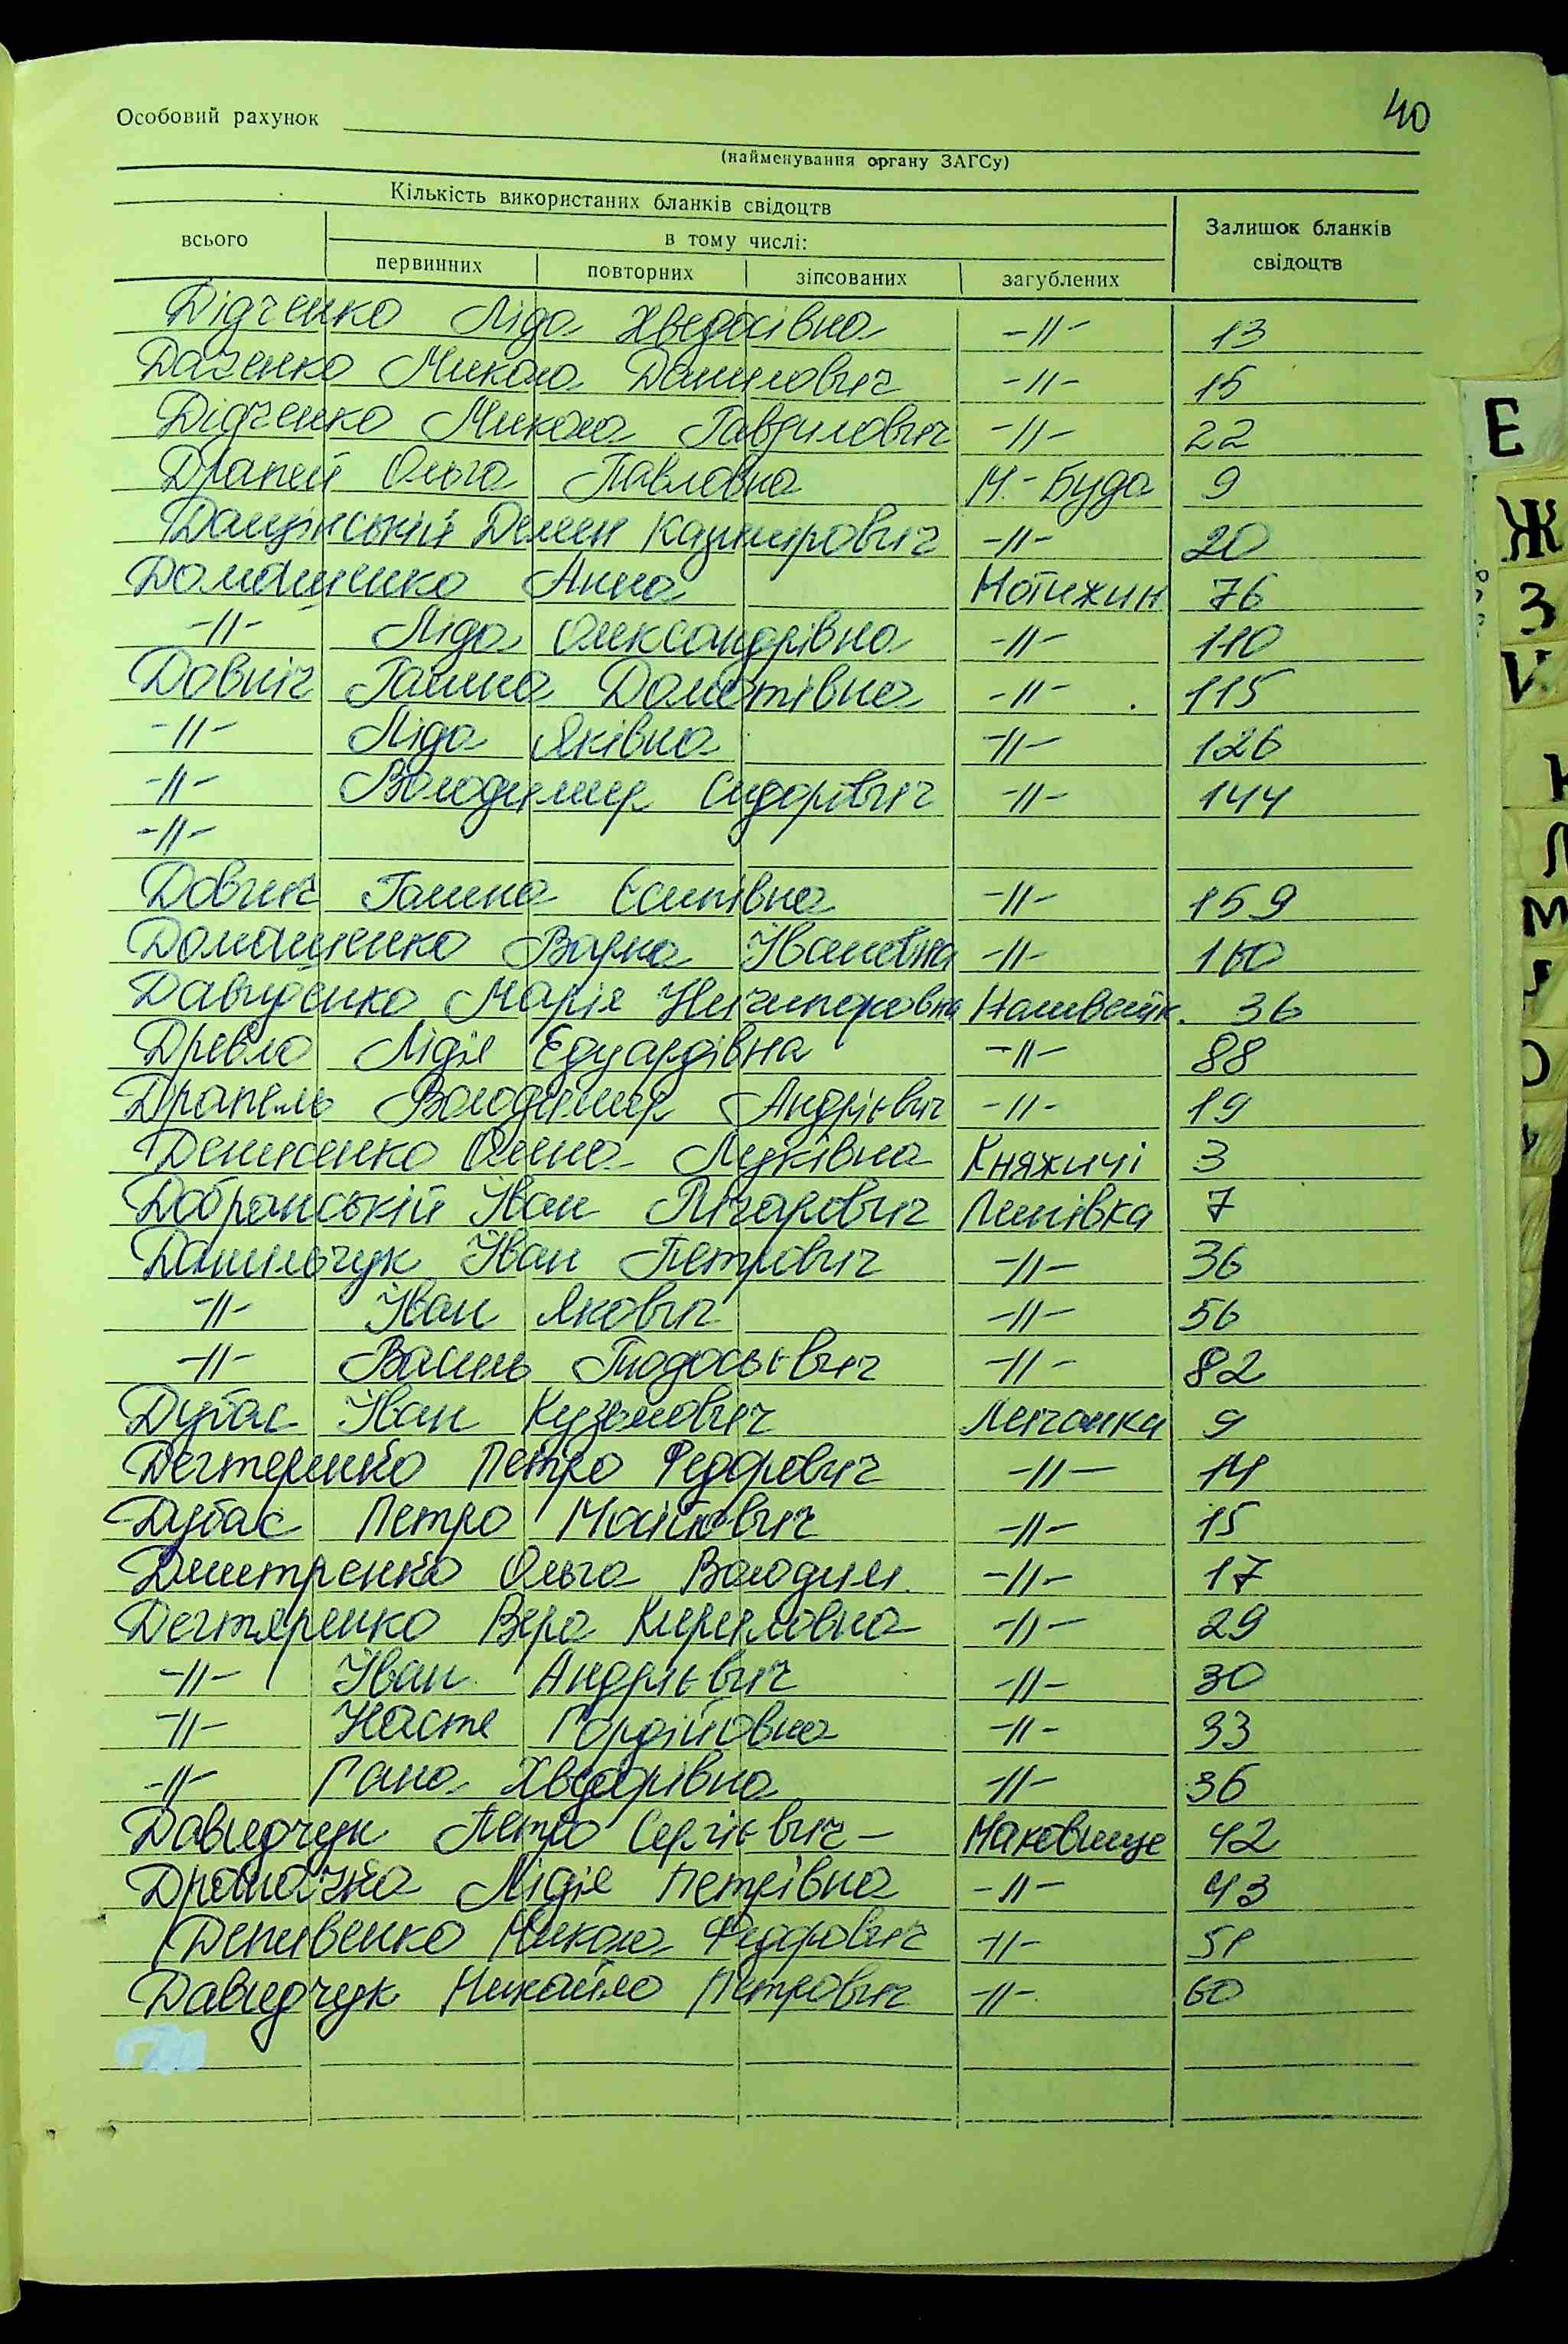 40
Особовий рахунок
(найменування органу ЗАГСу)
Кількість використаних бланків свідоцтв
Залишок бланків свідоцтв
всього
в тому числі:
первинних повторних зіпсованих загублених
Дідченко Ліда Хведосівна -//- 13
Даценко Микола Данилович -//- 15
Дідченко Микола Гаврилович -//- 22
Драпей Ольга Павловна М.-Буда 9
Данцінській Демен Казимирович -//- 20
Домащенко Анна Мотижин 76
-//- Ліда Олександрівна -//- 110
Довгич Галина Дометівна -//- 115
-//- Ліда Яківна -//- 126
-//- Володимир Сидорович -//- 144
-//-
Довгич Галина Єсипівна -//- 159
Домащенко Варка Івановна -//- 160
Давиденко Марія Ничипоровна Наливайк. 36
Древло Лідія Едуардівна -//- 88
Драпель Володимир Андрієвич -//- 19
Денисенко Олена Луківна Княжичі 3
Добранській Іван Лічарович Липівка 7
Данильчук Іван Петрович -//- 36
-//- Іван Якович -//- 56
-//- Василь Тодосьєвич -//- 82
Дубас Іван Кузьмович Личанка 9
Дегтеренко Петро Федорович -//- 14
Дубас Петро Мойсович -//- 15
Дмитренко Ольга Володим. -//- 17
Дегтяренко Вера Кириловна -//- 29
-//- Іван Андрієвич -//- 30
-//- Настя Гордійовна -//- 33
-//- Гана Хведорівна -//- 36
Давидчук Петро Сергієвич - Маковище 42
Лідія Петрівна -//- 43
Микола Федорович -//- 51
Давидчук Михайло Петрович -//- 60
Е
Ж
З
И
К
Л
М